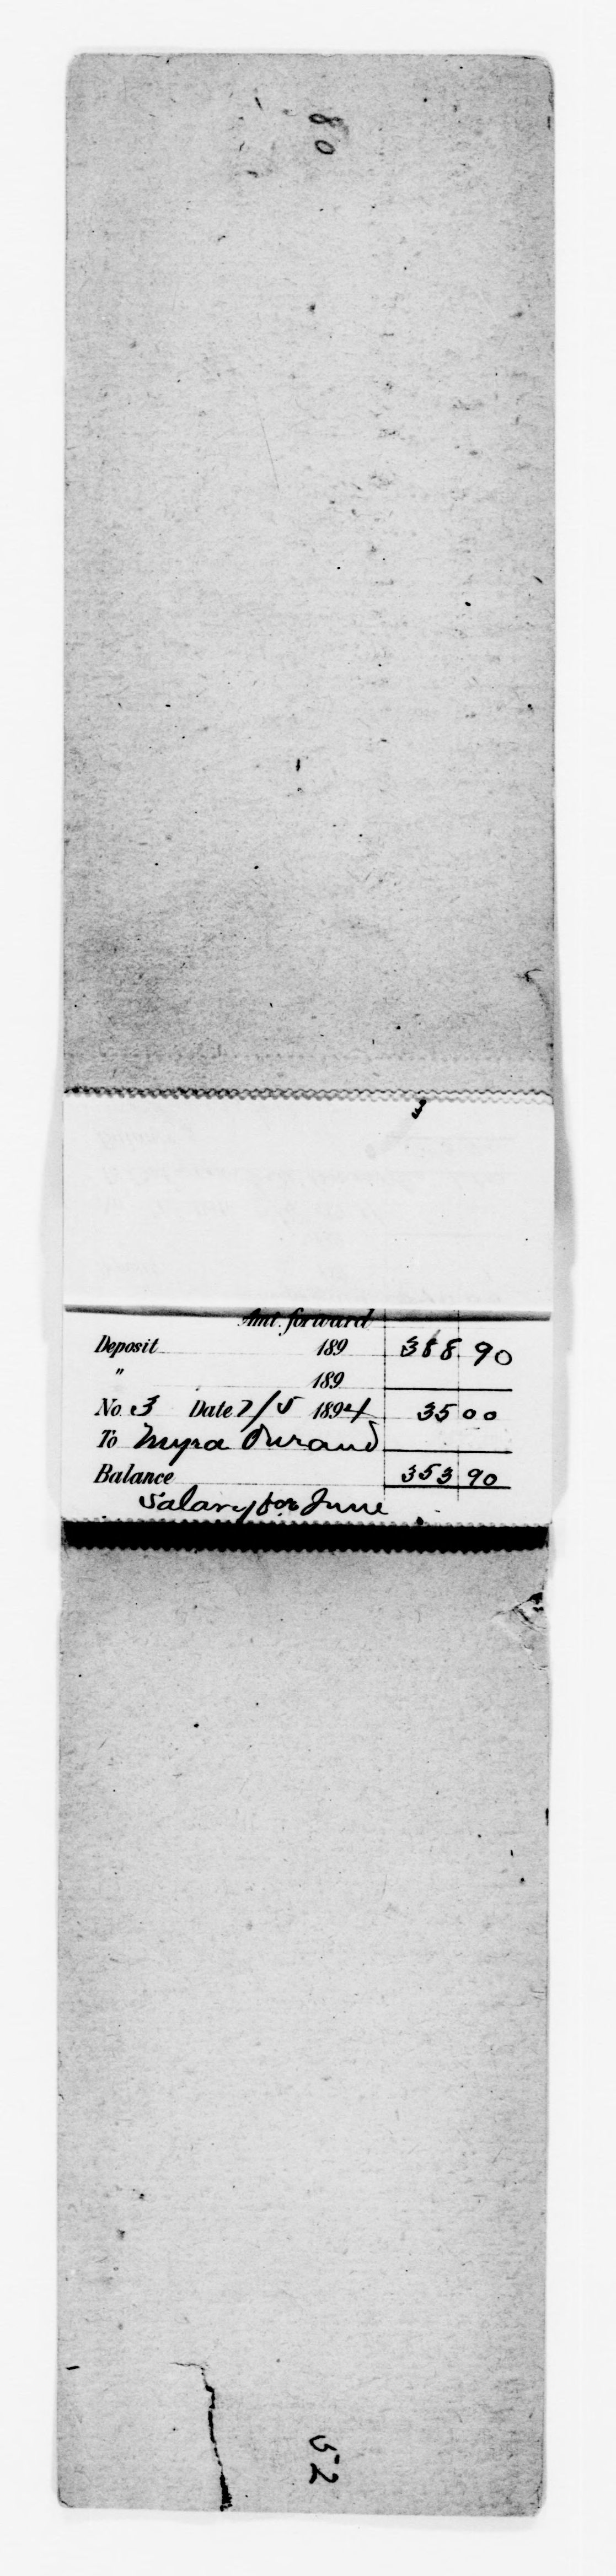 80
3
Amt. forward
Deposit 189 388 90
" 189
No. 3 Date 7/5 1894 35 00
To Myra Durand
Balance 353 90
Salary for June
52